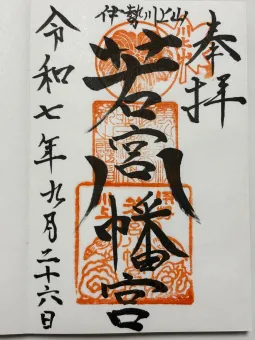 奉拝
伊勢川上山
若宮八幡宮
令和七年九月二十六日